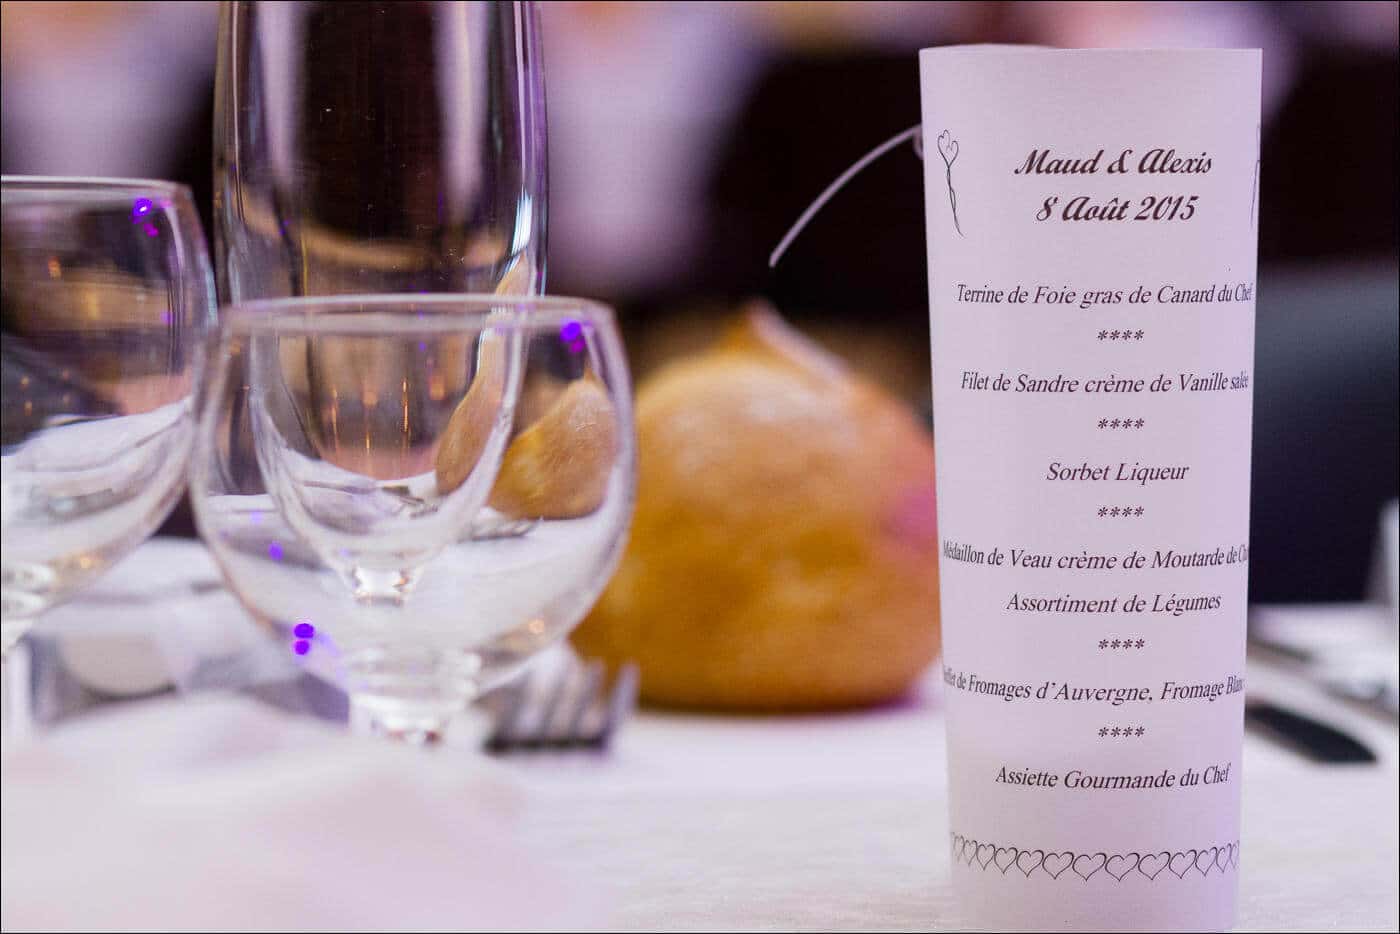 Maud & Alexis
8 Août 2015
Terrine de Foie gras de Canard du Chef
****
Filet de Sandre crème de Vanille salée
****
Sorbet Liqueur
****
Médaillon de Veau crème de Moutarde de
Assortiment de Légumes
****
de Fromages d'Auvergne, Fromage Blanc
****
Assiette Gourmande du Chef